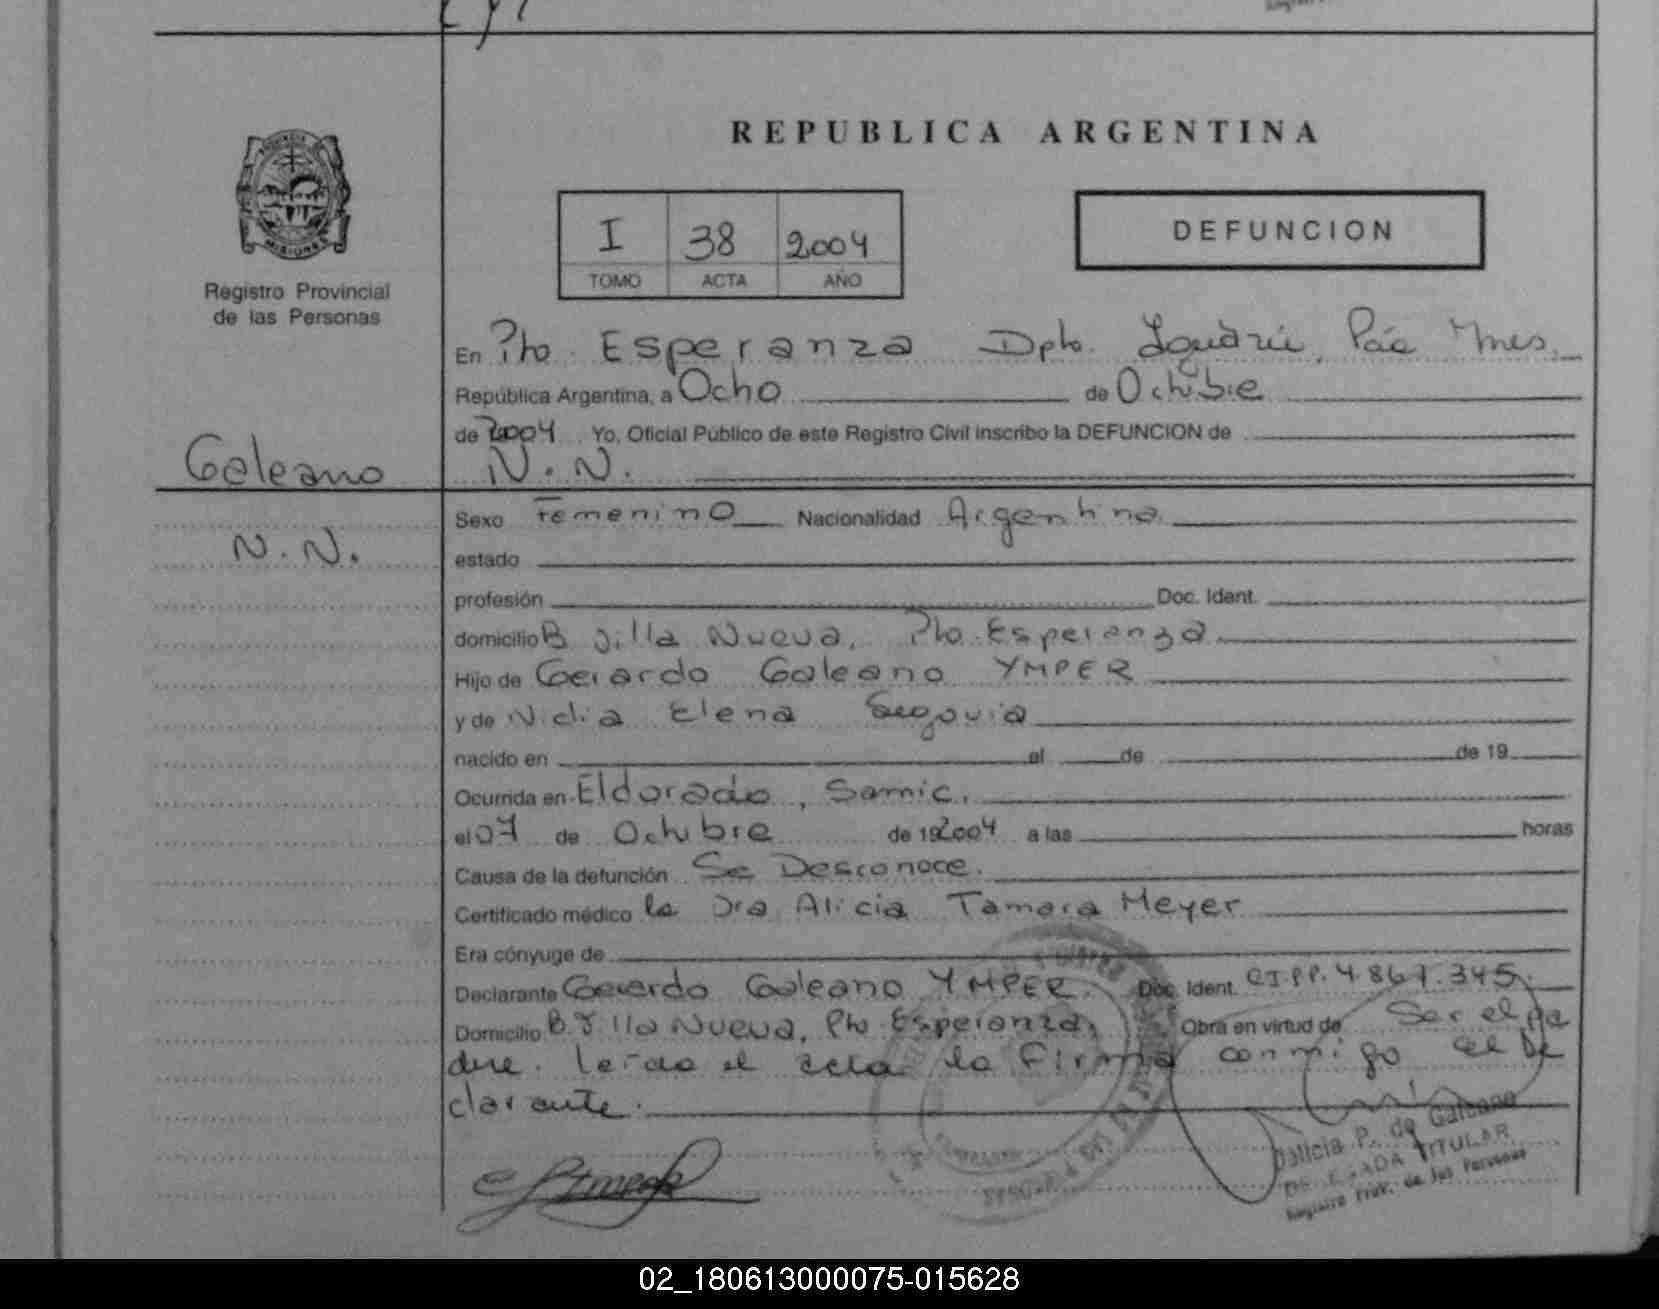 REPUBLICA ARGENTINA
MISIONES
Registro Provincial
de las Personas
I 38 2004
TOMO ACTA AÑO
DEFUNCION
En Pto. Esperanza Dpto. Iguazú, Pcia Mnes.
República Argentina, a Ocho de Octubre
de 2004 Yo, Oficial Público de este Registro Civil inscribo la DEFUNCION de
Galeano
N.N.
N.N.
Sexo Femenino Nacionalidad Argentina
estado
profesión Doc. Ident.
domicilio B Villa Nueva, Pto. Esperanza
Hijo de Gerardo Galeano YMPER
y de Nidia Elena Segovia
nacido en el de de 19
Ocurrida en Eldorado, Samic.
el 07 de Octubre de 19 2004 a las horas
Causa de la defunción Se Desconoce.
Certificado médico la Dra Alicia Tamara Meyer
Era cónyuge de
Declarante Gerardo Galeano YMPER. Doc. Ident. CI.PP. 4.867.345.
Domicilio B. Villa Nueva, Pto. Esperanza, Obra en virtud de Ser el pa
dre. leída el acta la Firma conmigo el De
clarante.
P. de Galeano
DELEGADA TITULAR
Registro Prov. de las Personas
02_180613000075-015628